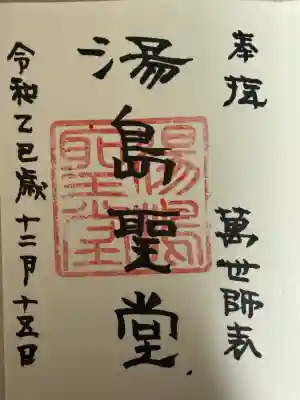 奉拜
萬世師表
湯島聖堂
令和乙巳歳十二月十五日